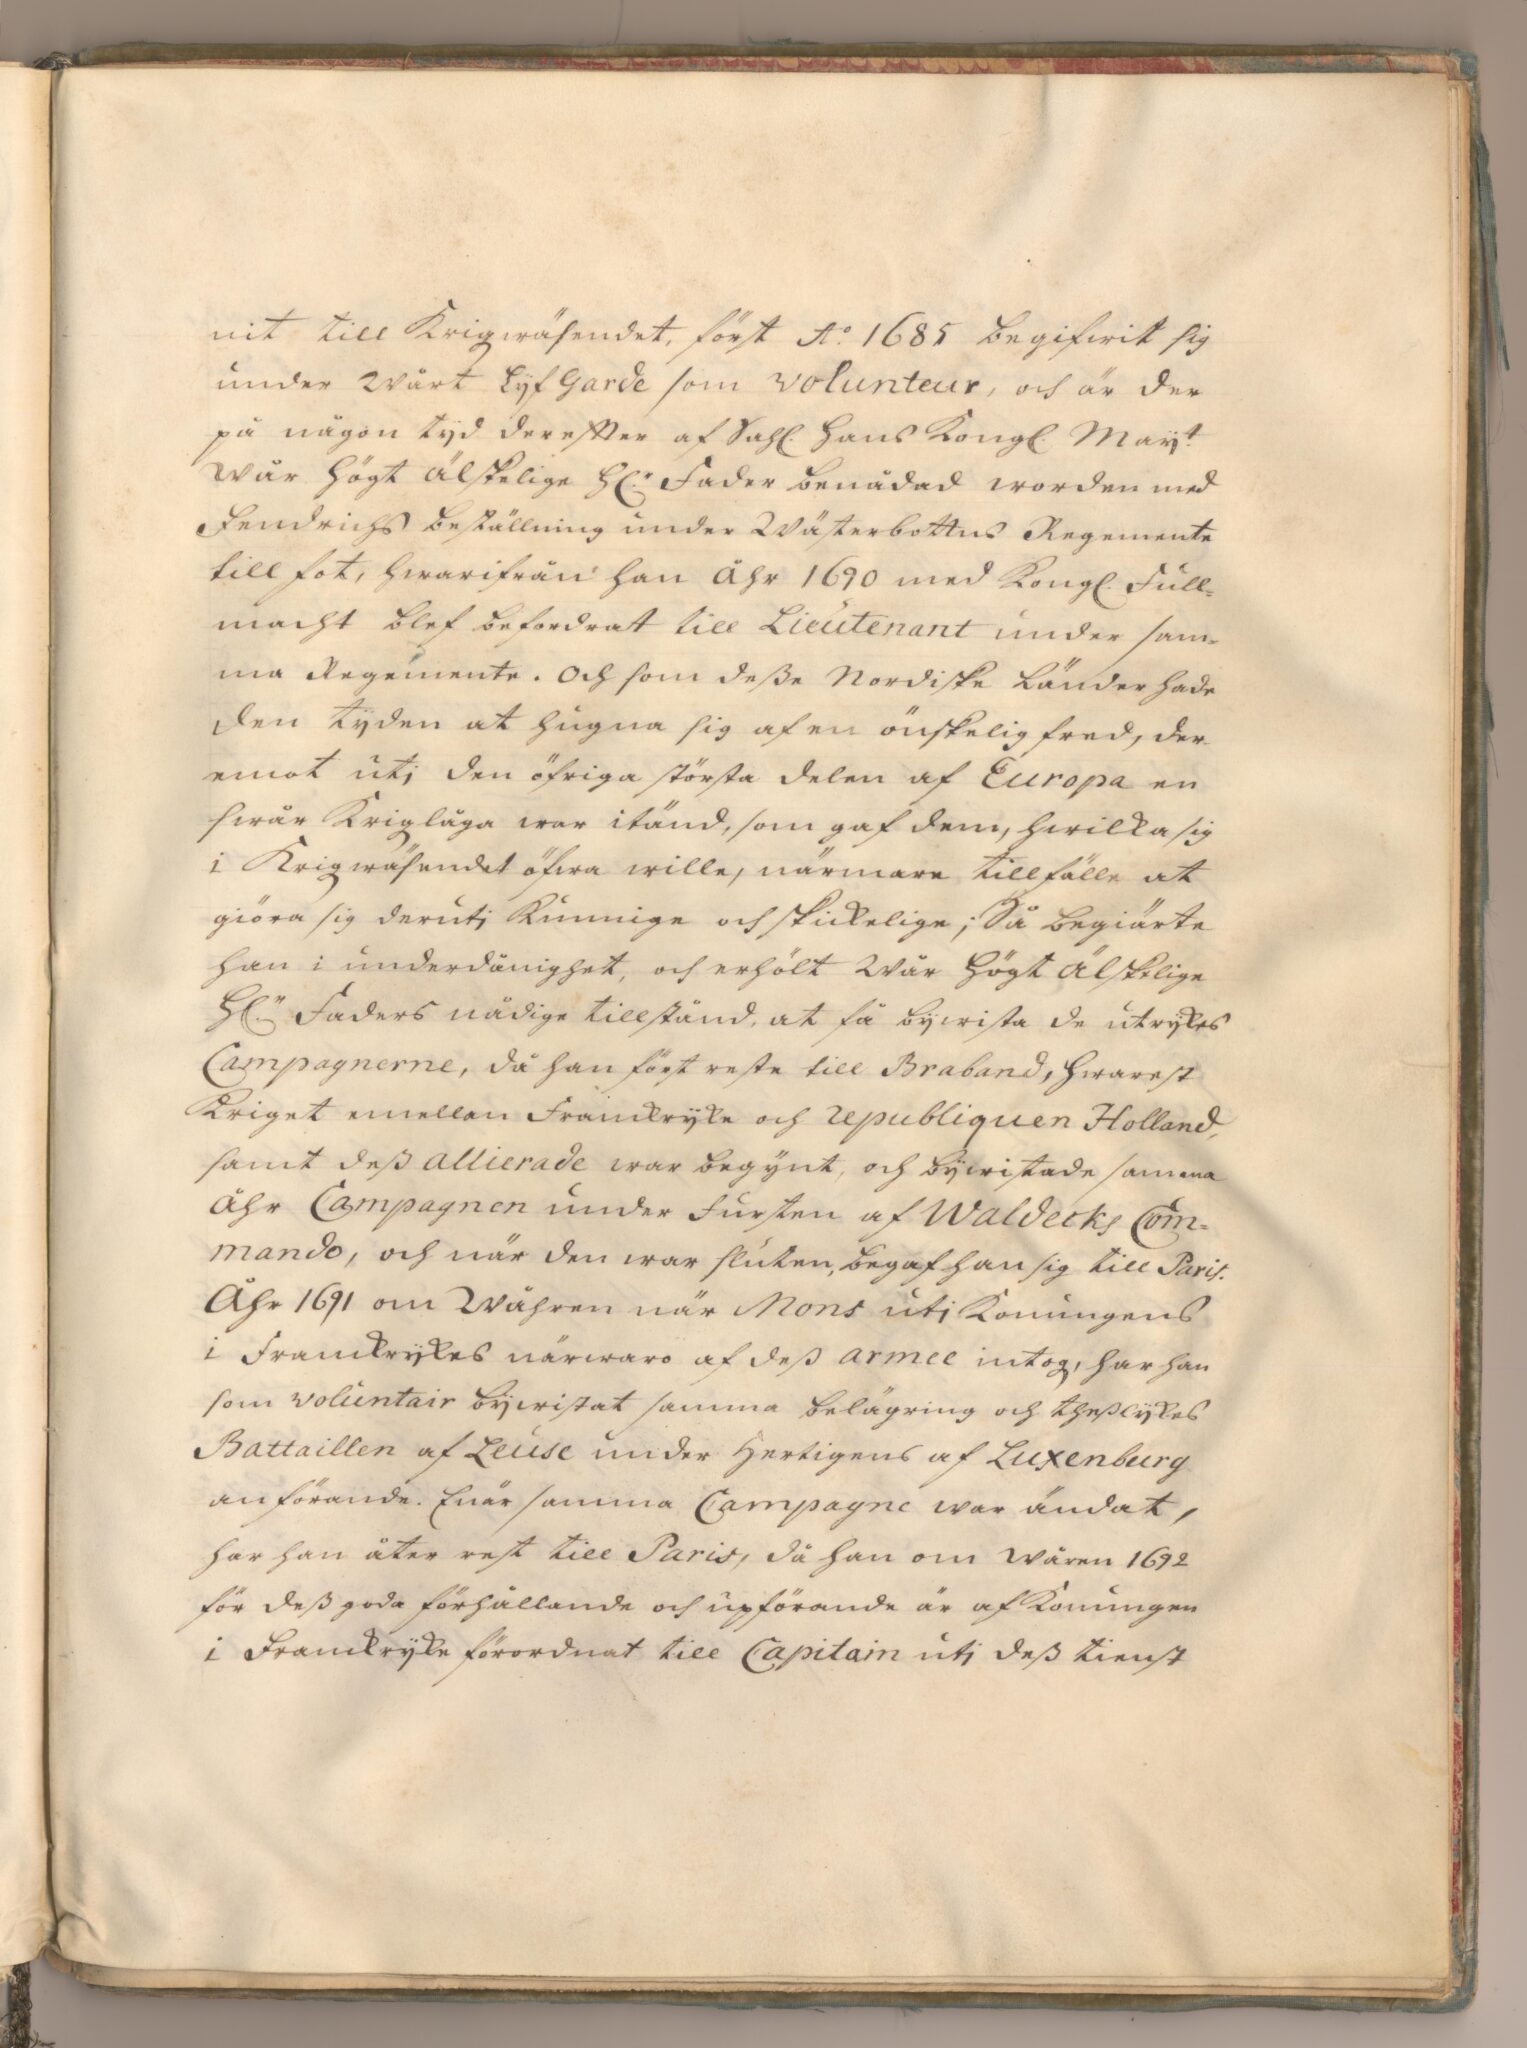 nit till Krigzwäsendet, först Ao. 1685 begifwit sig
under Wårt Lyf Garde som Volunteur, och är der
på någon tyd derefter af Sahl. Hans Kongl. Mayt.
Wår Högt Älskelige Hl.r Fader benådad worden med
Fendrichs beställning under Wästerbottns Regemente
till fot, hwarifrån han Åhr 1690 med Kongl. Full-
macht blef befordrat till Lieutenant under sam-
ma Regemente. Och som deße Nordiske Länder hade
den tyden at hugna sig af en önskelig fred, der-
emot utj den öfriga största delen af Europa en
swår Krigzlåga war itänd, som gaf dem, hwilka sig
i Krigzwäsendet öfwa wille, närmare tillfälle at
giöra sig derutj Kunnige och skickelige; Så begiärte
han i underdånighet, och erhölt Wår Högt Älskelige
Hl.r Faders nådige tillstånd, at få bywista de utrykes
Campagnerne, då han först reste till Braband, hwarest
Kriget emellan Franckryke och republiquen Holland,
samt deß allierade war begynt, och bywistade samma
Åhr Campagnen under Fursten af Waldecks Com-
mando, och när den war sluten, begaf han sig till Paris.
Åhr 1691 om Wåhren när Mons utj Konungens
i Franckrykes närwaro af deß armee intogs, har han
som voluntair bywistat samma belägring och theßlykes
Battaillen af Leuse under Hertigens af Luxenburg
anförande. Enär samma Campagne war ändat,
har han åter rest till Paris, då han om Wåren 1692
för deß goda förhållande och upförande är af Konungen
i Franckryke förordnat till Capitain utj deß tienst